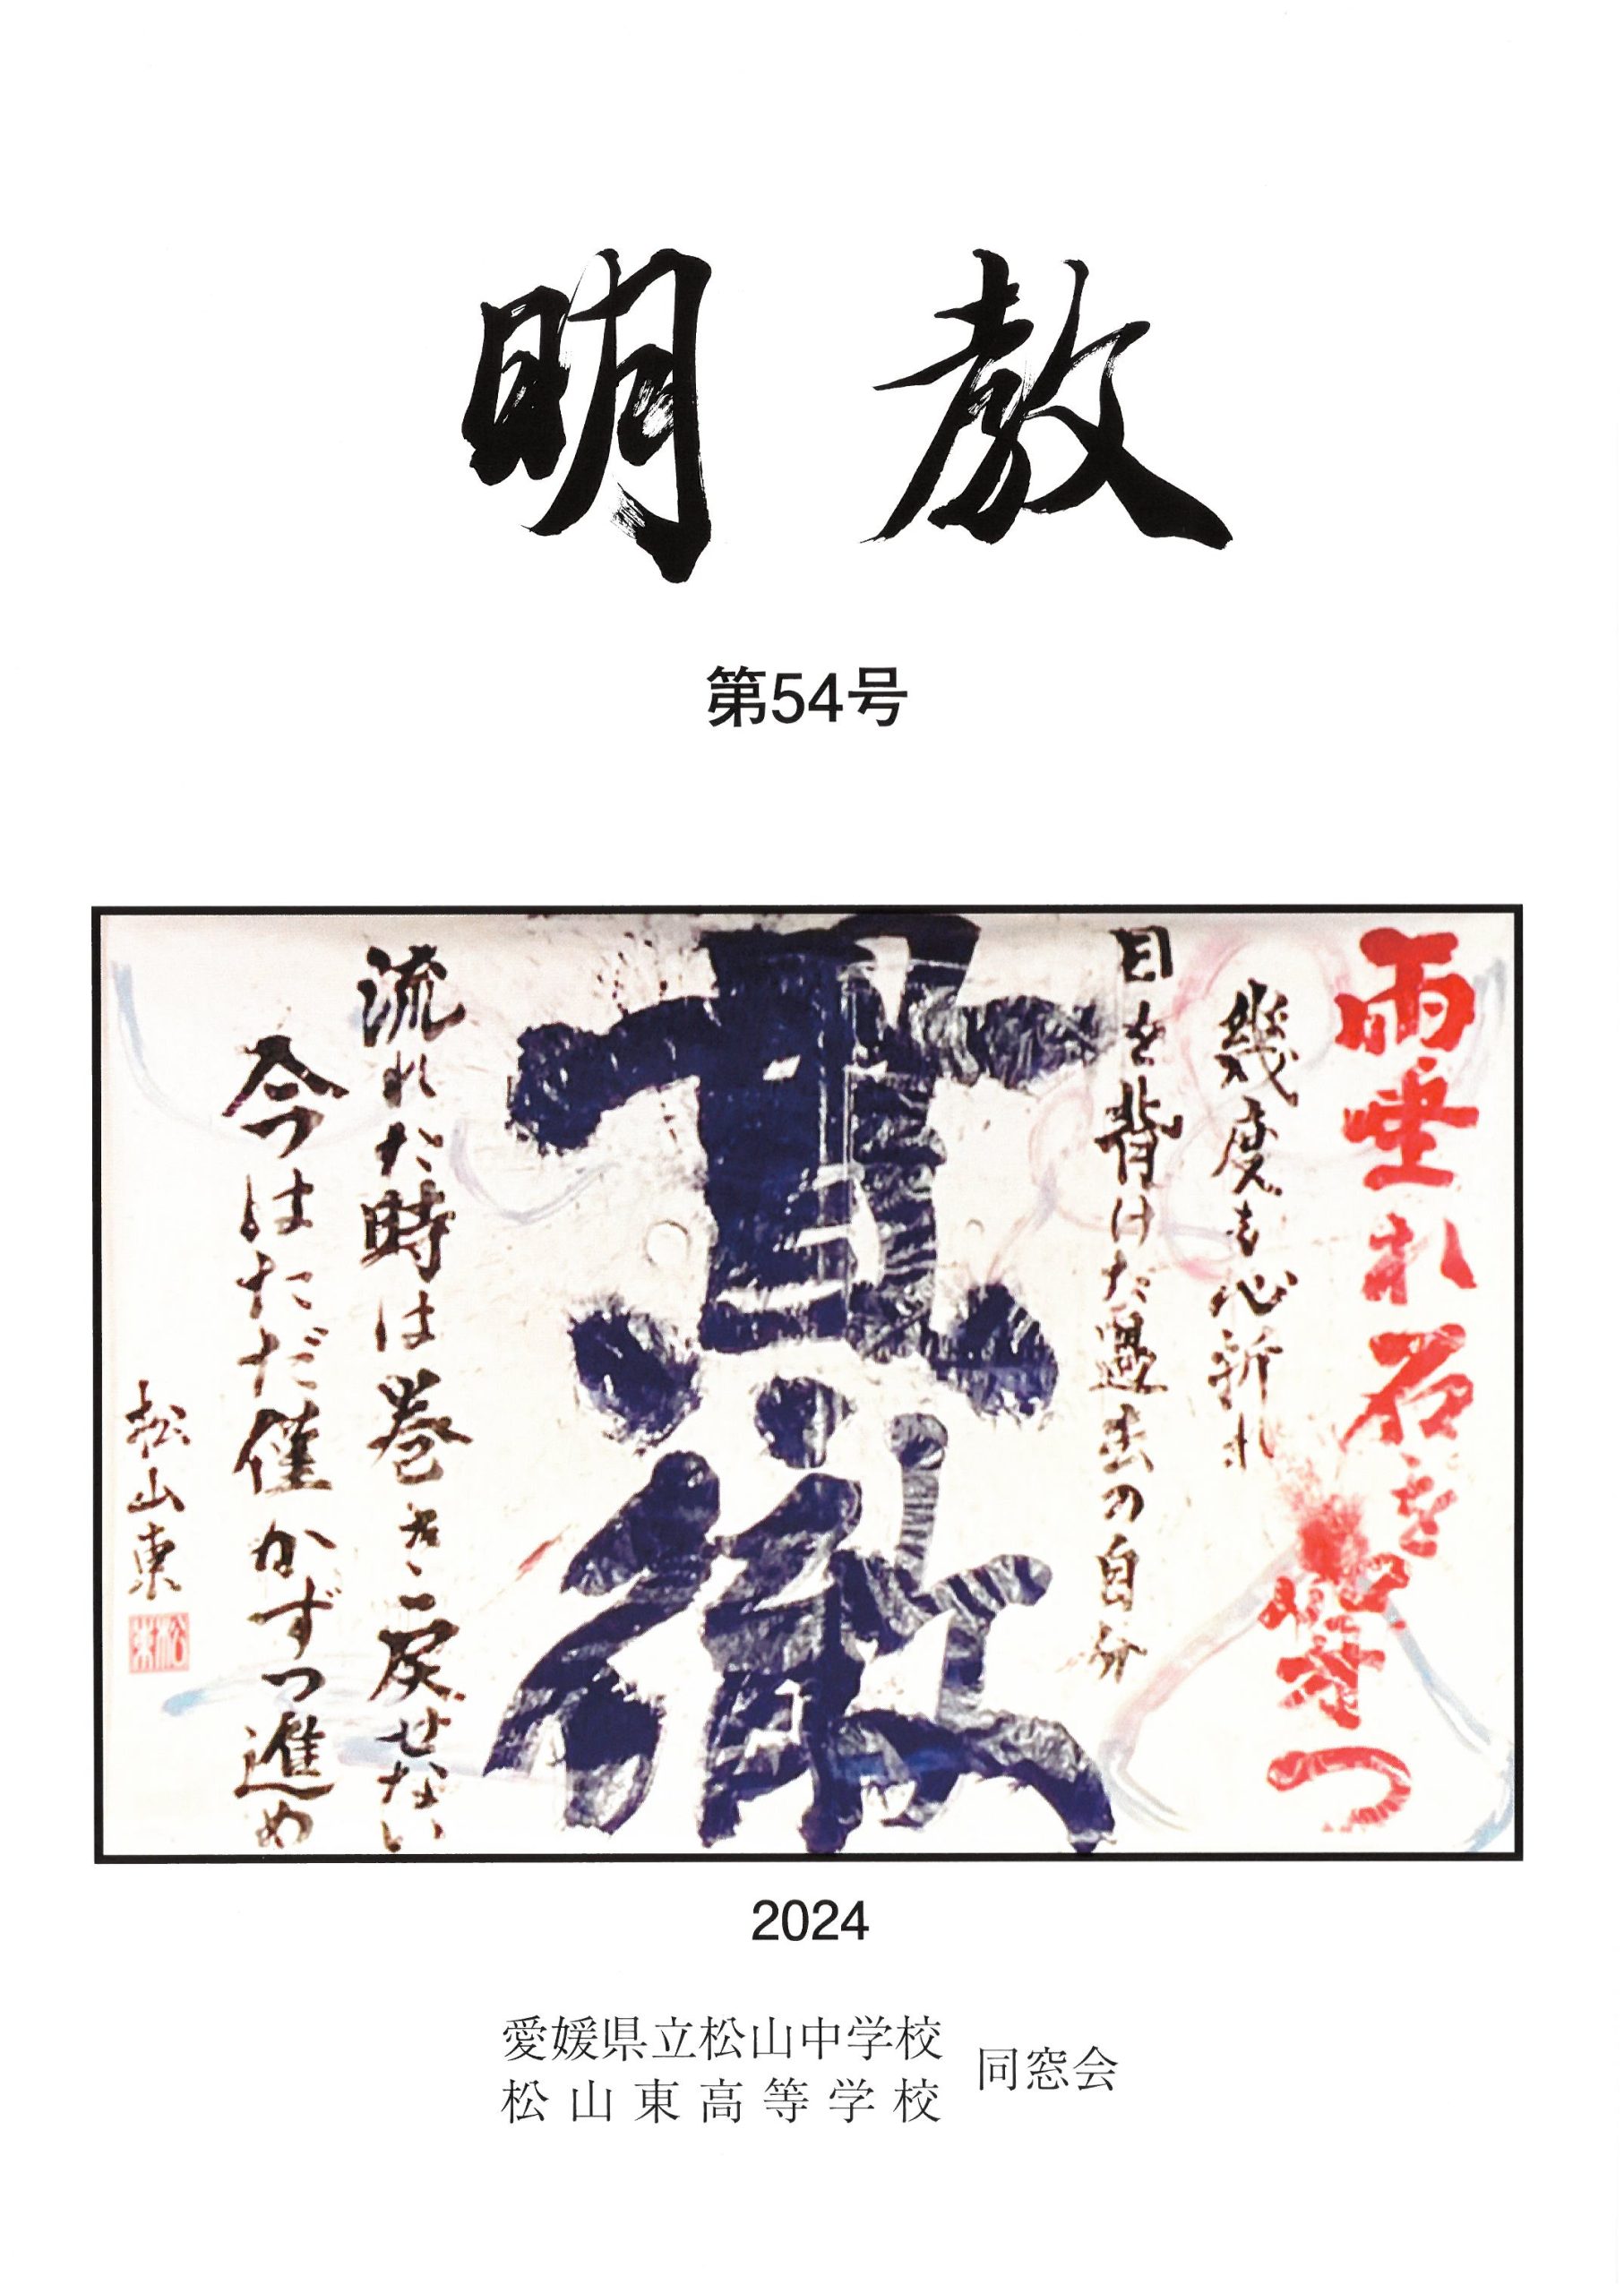 明教
第54号
雨垂れ石を穿つ
幾度も心折れ
目を背けた過去の自分
貫徹
流れた時は巻き戻せない
今はただ僅かずつ進め
松山東
松東
2024
愛媛県立松山中学校
松山東高等学校
同窓会